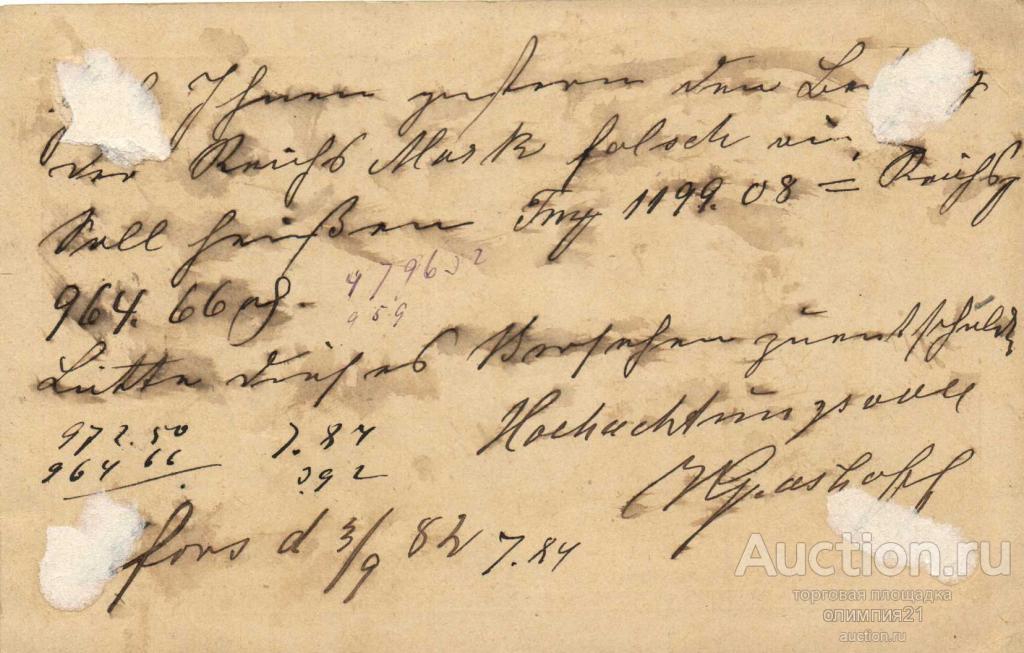 Ihnen gestern den
der Reichs Mark falsch
Soll heißen Frc 1199.08 = Reichsm
964.66
479632
959
Bitte dieses Versehen zu entschuld
Hochachtungsvoll
972.50 7.84
964 66 392
d 3/9 82 7.84
Auction.ru
торговая площадка
олимпия21
auction.ru